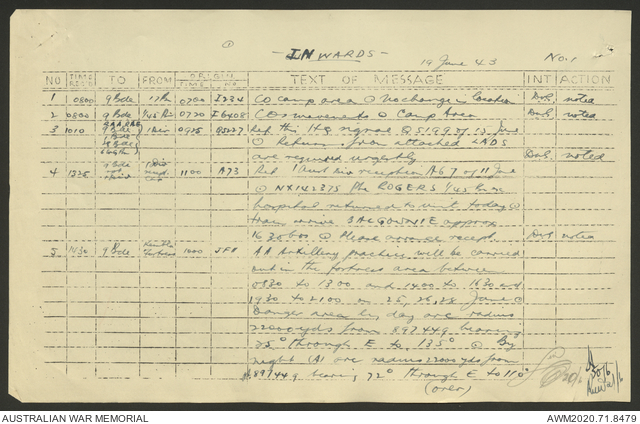 INWARDS -
19 June 43 No. 1
NO. TIME REC'D TO FROM ORIGIN TIME NO. TEXT OF MESSAGE INT ACTION
1 0800 9 Bde 17 Bn 0700 I234 CO camp area ⊙ No change in location noted
2 0800 9 Bde 1/45 Bn 0730 I6408 COs movements ⊙ Camp Area noted
3 1010 9 Bde 1 Div 0925 Ref this HQ signal G5199 of 12 June
⊙ Return from attached LADS
are required urgently noted
4 1335 9 Bde 1 Div 1100 A73 Ref 1 Aust Div reception A67 of 11 June
⊙ NX142375 Pte ROGERS 1/45 Bn in
hospital returned to unit today ⊙
train arrive BALGOWNIE approx
1630 hrs ⊙ Please recept noted
5 1430 9 Bde Kembla Fortress 1000 AA Artillery practices will be carried
out in the fortress area between
0830 to 1300 and 1400 to 1630 and
1930 to 2100 on 25, 26, 28 June ⊙
Danger area by day arc radius
22000 yds from 897449 bearing
35° through E to 135° ⊙ By
night (A) arc radius 22000 yds from
897449 bearing 72° through E to 110°
(over)
20/6
AUSTRALIAN WAR MEMORIAL AWM2020.71.8479